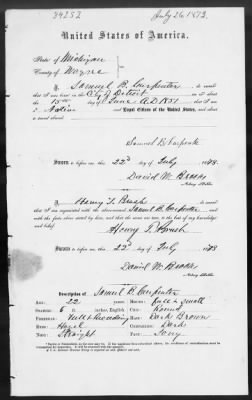 34252 July 26 1873.
United States of America.
State of Michigan
County of Wayne
I, Samuel B. Carpenter do swear
that I was born in the City of Detroit on or about
the 15th day of June A.D. 1851 that I am
a Native and Loyal Citizen of the United States, and about
to travel abroad.
Samuel B. Carpenter
Sworn to before me this 22d day of July
Daniel W. Brooks
Notary Public.
I, Henry T. Brush do swear
that I am acquainted with the above-named Samuel B. Carpenter and
with the facts above stated by him, and that the same are true, to the best of my knowledge
and belief.
Henry T. Brush
Sworn to before me this 22d day of July
Daniel W. Brooks
Notary Public.
Description of Samuel B. Carpenter
Age: 22 Mouth: full & small
Stature: 5 feet inches, English Chin: Round
Forehead: Full & Receding Hair: Dark Brown
Eyes: Hazel Complexion: Dark
Nose: Straight Face: Long